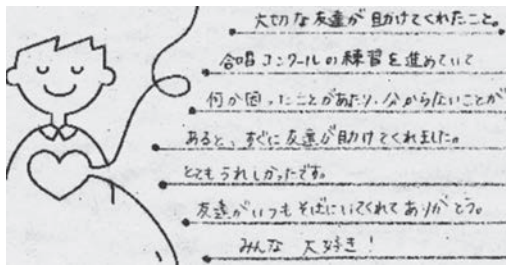 大切な友達が助けてくれたこと。
合唱コンクールの練習を進めていて
何か困ったことがあたり、分からないことが
あると、すぐに友達が助けてくれました。
とてもうれしかったです。
友達がいつもそばにいてくれてありがとう。
みんな 大好き!